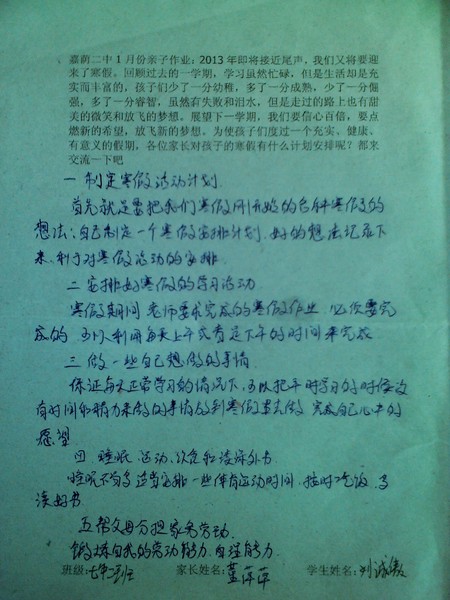 嘉荫二中1月份亲子作业：2013年即将接近尾声，我们又将要迎
来了寒假。回顾过去的一学期，学习虽然忙碌，但是生活却是充
实而丰富的，孩子们少了一分幼稚，多了一分成熟，少了一分倔
强，多了一分睿智，虽然有失败和泪水，但是走过的路上也有甜
美的微笑和放飞的梦想。展望下一学期，我们要信心百倍，要点
燃新的希望，放飞新的梦想。为使孩子们度过一个充实、健康、
有意义的假期，各位家长对孩子的寒假有什么计划安排呢？都来
交流一下吧
一 制定寒假活动计划.
首先就是要把我们寒假刚开始的各种寒假的
想法；自己制定一个寒假安排计划，好的想法记录下
来，利于对寒假活动的安排.
二 安排好寒假的学习活动
寒假期间 老师要求完成的寒假作业，必须要完
成的 可以利用每天上午或者是下午的时间来完成
三 做一些自己想做的事情
保证每天正常学习的情况下，可以把平时学习的时候没
有时间和精力来做的事情放到寒假里去做 完成自己心中的
愿望
四 睡眠、运动、饮食和读课外书.
睡眠不多 适当安排一些体育运动时间，按时吃饭，多
读好书
五 帮父母分担家务劳动.
锻炼自我的劳动能力，自理能力.
班级：七年二班 家长姓名：董萍萍 学生姓名：刘诚